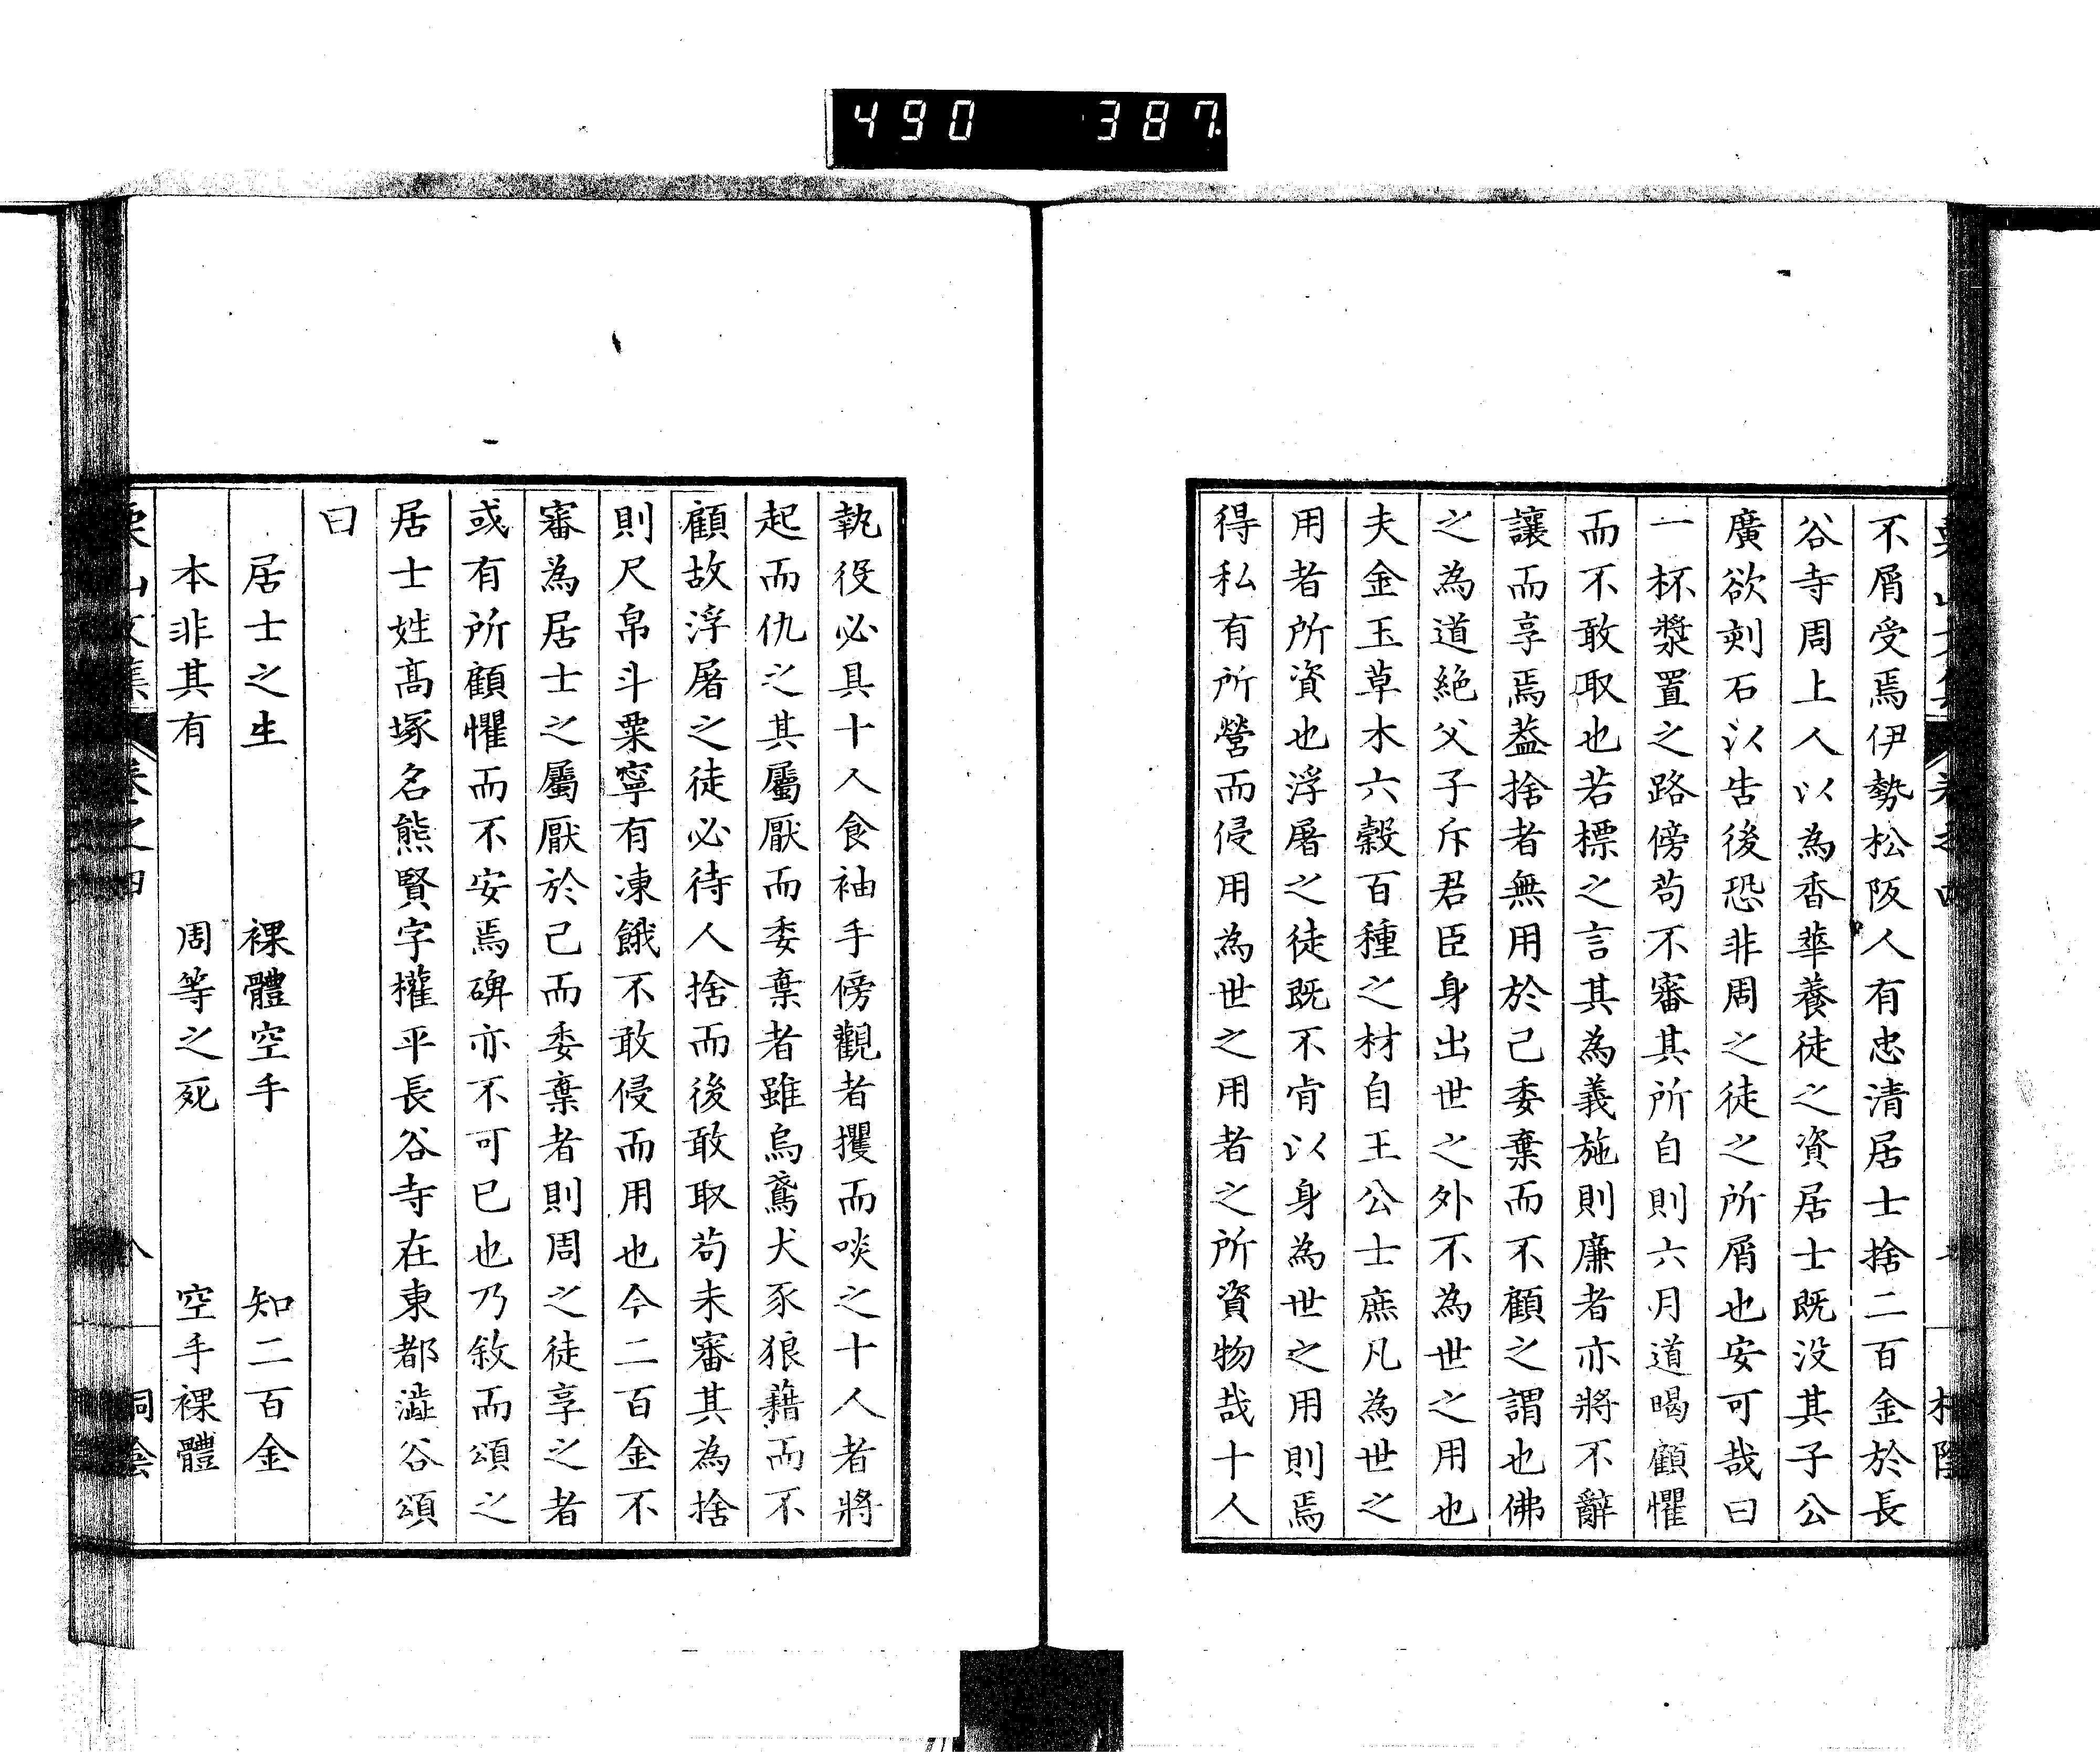 490 387
不屑受焉伊勢松阪人有忠清居士捨二百金於長
谷寺周上人以為香華養徒之資居士既没其子公
廣欲刻石以告後恐非周之徒之所屑也安可哉曰
一杯漿置之路傍苟不審其所自則六月道暍顧懼
而不敢取也若標之言其為義施則廉者亦將不辭
讓而享焉葢捨者無用於己委棄而不顧之謂也佛
之為道絶父子斥君臣身出世之外不為世之用也
夫金玉草木六穀百種之材自王公士庶凡為世之
用者所資也浮屠之徒既不肯以身為世之用則焉
得私有所營而侵用為世之用者之所資物哉十人
執役必具十人食袖手傍觀者攫而啖之十人者將
起而仇之其屬厭而委棄者雖烏鳶犬豕狼藉而不
顧故浮屠之徒必待人捨而後敢取苟未審其為捨
則尺帛斗粟寧有凍餓不敢侵而用也今二百金不
審為居士之屬厭於己而委棄者則周之徒享之者
或有所顧懼而不安焉碑亦不可已也乃敘而頌之
居士姓髙塚名熊賢字權平長谷寺在東都澁谷頌
曰
居士之生 裸體空手 知二百金
本非其有 周等之死 空手裸體
栗山文集 卷之四 八